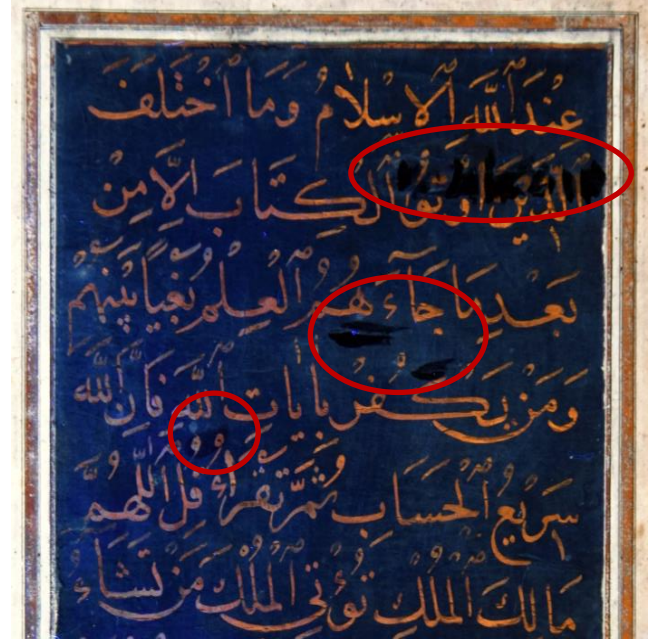 عِنْدَ ٱللَّهِ ٱلْإِسْلَامُ وَمَا ٱخْتَلَفَ
ٱلَّذِينَ أُوتُوا ٱلْكِتَابَ إِلَّا مِنْ
بَعْدِ مَا جَآءَهُمُ ٱلْعِلْمُ بَغْيًا بَيْنَهُمْ
وَمَنْ يَكْفُرْ بِأٰيَاتِ ٱللَّهِ فَإِنَّ ٱللَّهَ
سَرِيعُ ٱلْحِسَابِ ثُمَّ تَقْرَأُ قُلِ ٱللَّهُمَّ
مَالِكَ ٱلْمُلْكِ تُؤْتِي ٱلْمُلْكَ مَنْ تَشَآءُ